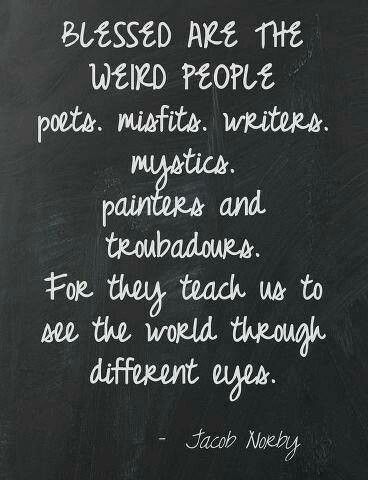 BLESSED ARE THE
WEIRD PEOPLE
poets. misfits. writers.
mystics.
painters and
troubadours.
For they teach us to
see the world through
different eyes.
- Jacob Norby